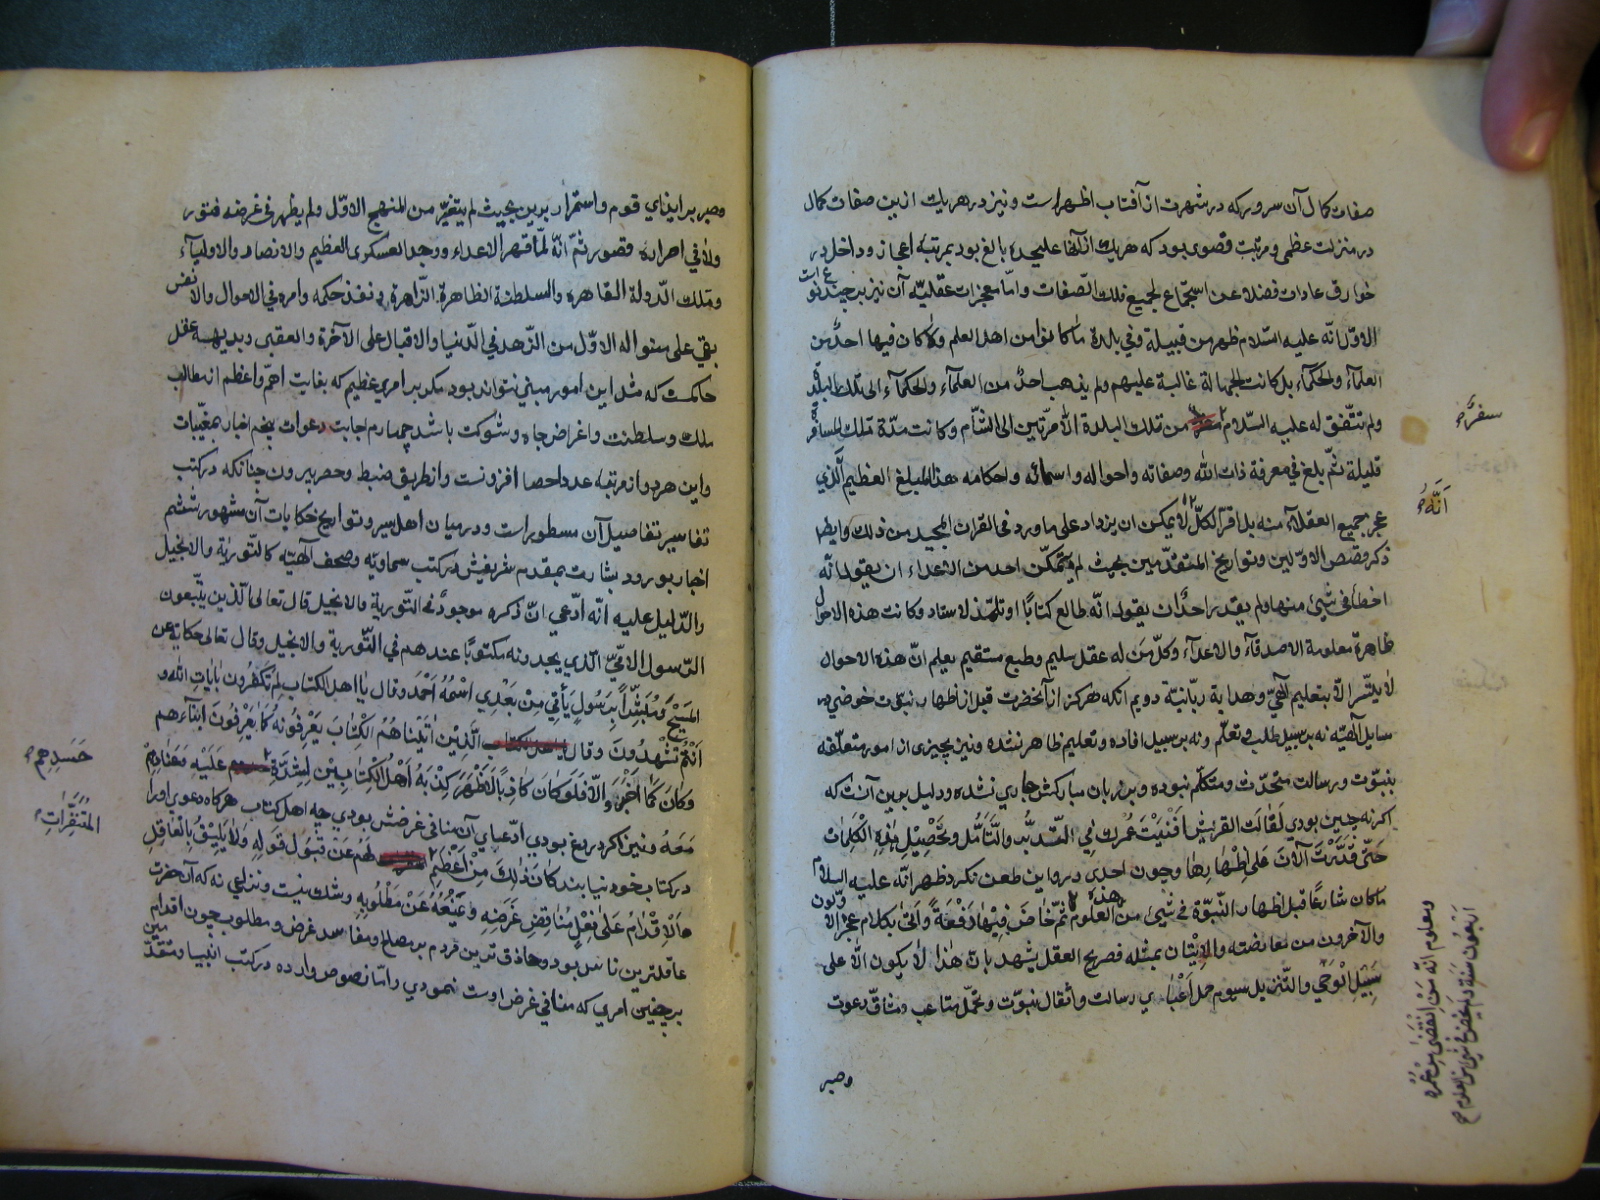 صفات کمال آن سرور که در شهرت از آفتاب اظهر است و نیز در هر یک ازین صفات کمال
در منزلت عظمی و مرتبت قصوی بود که هر یک از آنها علیحده بالغ بود بمرتبه اعجاز و داخل در
خوارق عادات فضلا عن استجماع لجمیع تلک الصفات و اما معجزات عقلیّه آن نیز بر چند نوع است
الاوّل انّه علیه السّلام ظهر من قبیلة و في بلدة ما کانوا من اهل العلم و لا کان فیها احدٌ من
العلمآء والحکمآء بل کانت الجهالة غالبة علیهم ولم یذهب احدٌ من العلمآء والحکمآء الی تلک البلدة
ولم یتّفق له علیه السّلام من تلک البلدة الّا مرّتین الی الشّام و کانت مدّة تلک المسافرة
سفرٌ صح
قلیلة ثمّ بلغ في معرفة ذات الله وصفاته واحواله واسمائه واحکامه هذا المبلغ العظیم الّذي
عجز جمیع العقلآء منه بل اقرّ الکلّ لا یمکن ان یزداد علی ما ورد في القران المجید من ذلک وایضا
انّه صح
ذکر قصص الاوّلین وتواریخ المتقدّمین بحیث لم یتمکّن احد من الاعداء ان یقول انّه
اخطا في شيئ منها ولم یقدر احدٌ ان یقول انّه طالع کتابًا او تلمّذ لاستاد وکانت هذه الاحوال
ظاهرة معلومة الاصدقآء والاعدآء وکلّ من له عقل سلیم وطبع مستقیم یعلم انّ هذه الاحوال
لا یتیسّر الّا بتعلیم الٓهيّ وهدایة ربّانیّة دویم آنکه هرکز از آنحضرت قبل از اظهار نبوّت خوضی در
مسایل آلهیّه نه بر سبیل طلب و تعلّم و نه بر سبیل افاده و تعلیم ظاهر نشده و نیز بچیزی از امور متعلّقه
بنبوّت و رسالت متحدّث و متکلّم نبوده و بر زبان مبارکش جاري نشده و دلیل برین آنست که
اکر نه چنین بودي لَقالَت القریش اَفنَیْتَ عُمرَکَ فِي التّدبُّر والتّأمُّل و تحْصِیْلِ هٰذِهِ الکَلِمات
حَتّی قَدَرْتَ الآنَ عَلی اِظْهارِها و چون احدی درو این طعن نکرد ظهر انّه علیه السلام
ما کان شارعًا قبل اظهار النّبوّة في شيئ من هذه العلوم ثمّ خاضَ فیها دَفْعَةً وَاَتی بکلامٍ عجز الاوّلون
والآخرون من معارضته والاتیان بمثله فصریح العقل یشهد بانّ هذا لا یکون الّا علی
سَبِیلِ الْوَحْيِ والتّنزیل سیوم حمل اعْبای رسالت و اثقال نبوّت و تحمّل متاعب و مشاقّ دعوت
ومعلوم انّه مَنْ انْقَضیٰ مِنْ عُمْرِهِ
اَرْبَعُونَ سَنَة ولم یَخُض في شيئ من العلوم صح
وصبر
وصبر بر ایذای قوم و استمرار برین بحیث لم یتغیّر من المنهج الاوّل ولم یظهر في غرضه فتور
ولا في اصراره قصور ثمّ انّه لمّا قهر الاعداء ووجد العسکر العظیم والانصار والاولیآء
وملک الدّولة القاهرة والسلطنة الظاهرة الزّاهرة ونفذ حکمه وامره في الاموال والانفس
بقي علی منواله الاوّل من الزّهد في الدّنیا والاقبال علی الآخرة والعقبی و بدیهه عقل
حاکمست که مثل این امور مبني نتواند بود مکر بر امری عظیم که بغایت اهمّ و اعظم از مطالب
ملک و سلطنت و اغراض جاه و شوکت باشد چهارم اجابت دعوات پنجم اخبار بمغیّبات
و این هر دو از مرتبه عدد احصا افزونست و از طریق ضبط و حصر بیرون چنانکه در کتب
تفاسیر تفاصیل آن مسطور است و در میان اهل سیر و تواریخ حکایات آن مشهور ششم
اخبار بورود بشارت بمقدم شریفش در کتب سماویّه و صحف الٓهیّه کالتّوریة والانجیل
والدّلیل علیه انّه ادّعي انّ ذکره موجودٌ في التّوریة والانجیل قال تعالی الّذین یتّبعون
الرّسول الامّيّ الّذي یجدونه مکتوبًا عندهم في التّوریة والانجیل وقال تعالی حکایة عن
المَسیْحِ وَمُبَشِّراً بِرَسُولٍ یَأْتِي مِنْ بَعْدِي اسْمُهُ اَحْمَدُ وقال یا اهل الکتاب لم تکفرون بآیاتِ الله و
اَنْتُمْ تَشْهَدُونَ وقال الَّذِیْنَ اٰتَیْناهُمُ الْکِتابَ یَعْرِفُونَهُ کَمٰا یَعْرِفُونَ اَبْنٰآءَهُمْ
وکانَ کَمٰا اَخْبَرَ وَاِلّا فَلَو کانَ کاذِبًا لَاَظْهَرَ کِذْبَهُ اَهْلُ الْکِتابَیْنِ لِشِدَّةِ عَلَیْهِ
حَسَدِهِم صح
مَعَهُ و نیز اکر دروغ بودي ادّعای آن منافی غرضش بودي چه اهل کتاب هر کاه دعوی او را
المُنَفِّراتِ صح
در کتاب خود نیابند کانَ ذٰلِکَ مِنْ اَعْظَمِ لَهُم عَنْ قَبُولِ قَولِهِ وَلا یَلِیقُ بِالْعٰاقِلِ
اَلْاِقْدامُ عَلی فِعْلٍ یُناقِضُ غَرَضَهُ وَیَمْنَعُهُ عَنْ مَطْلُوبِهِ و شک نیست و نزاعي نه که آنحضرت
عاقلترین ناس بود و حاذق ترین مردم بر مصالح و مفاسد غرض و مطلوب چون اقدام
بر چنین امری که منافی غرض اوست نمودي و امّا نصوص وارده در کتب انبیا متقدّمین